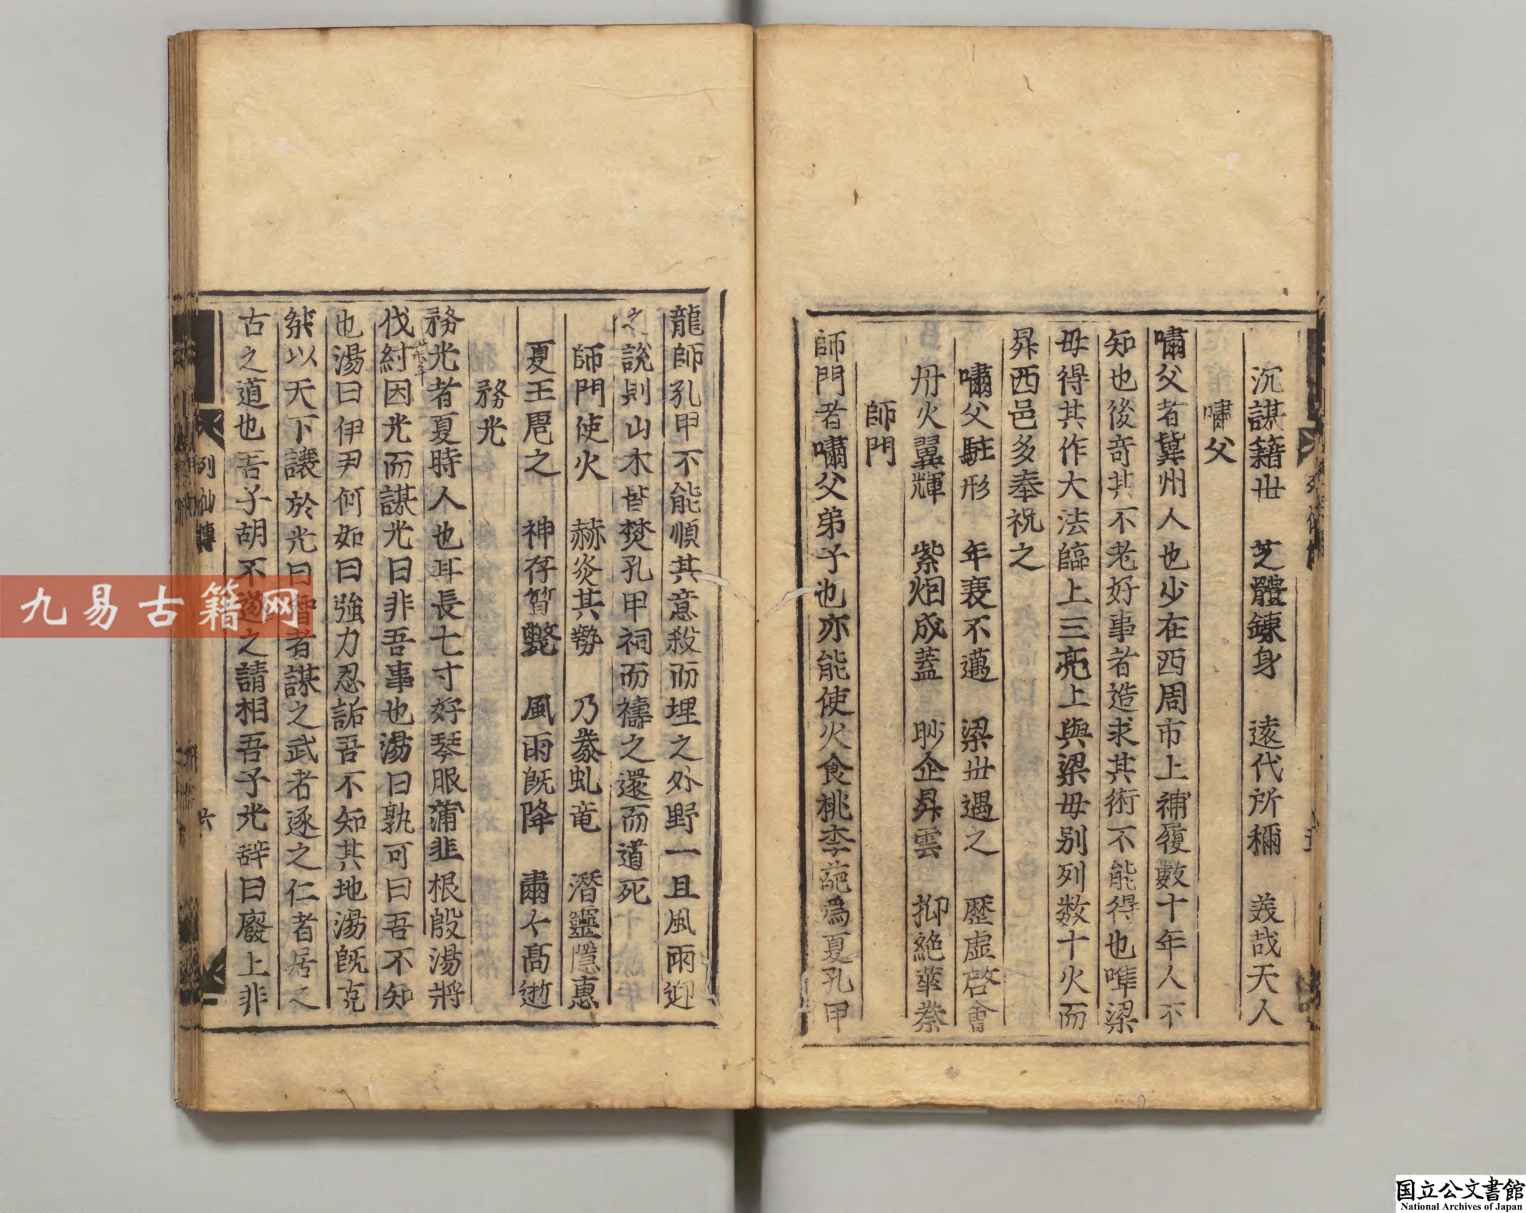 沉謀籍卋　芝體鍊身　遠代所稱　美哉天人
嘯父
嘯父者冀州人也少在西周市上補履數十年人不
知也後奇其不老好事者造求其術不能得也唯梁
母得其作大法臨上三亮上與梁母別列数十火而
昇西邑多奉祝之
嘯父駐形　年衰不邁　梁卋遇之　歷虛啓會
丹火翼輝　紫烟成蓋　眇企昇雲　抑絶華叅
師門
師門者嘯父弟子也亦能使火食桃李葩為夏孔甲
龍師孔甲不能順其意殺而埋之外野一旦風雨迎
之說則山木皆焚孔甲祠而禱之還而道死
師門使火　赫炎其勢　乃豢虬竜　潛靈隱惠
夏王虐之　神存質斃　風雨既降　肅尒高逝
務光
務光者夏時人也耳長七寸好琴服蒲韭根殷湯將
伐紂因光而謀光曰非吾事也湯曰孰可曰吾不知
也湯曰伊尹何如曰強力忍詬吾不知其地湯既克
桀以天下讓於光曰智者謀之武者逐之仁者居之
古之道也吾子胡不遂之請相吾子光辞曰廢上非
列仙傳
六
九易古籍网
国立公文書館
National Archives of Japan